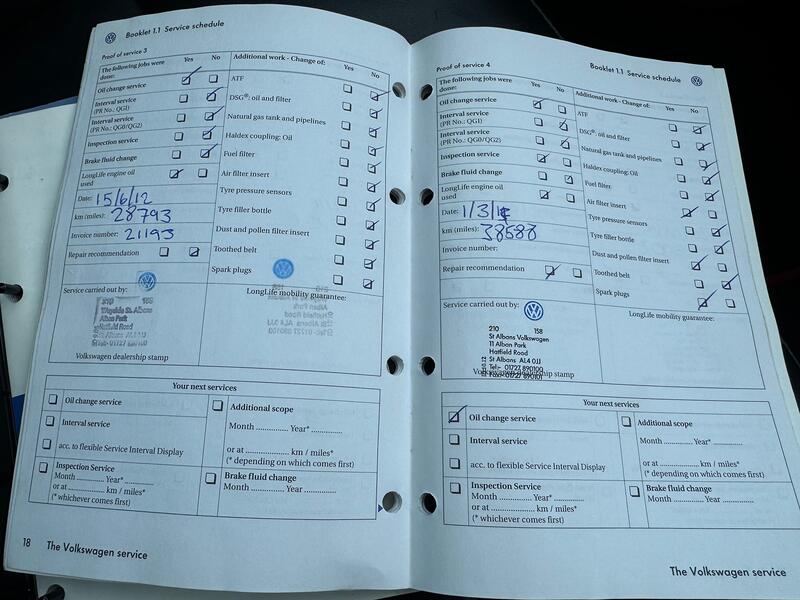 Booklet 1.1 Service schedule
Proof of service 3
The following jobs were done:
Yes No
Oil change service
Interval service
(PR No.: QG1)
Interval service
(PR No.: QG0/QG2)
Inspection service
Brake fluid change
LongLife engine oil
used
Date: 15/6/12
km (miles): 28793
Invoice number: 21193
Repair recommendation
Additional work - Change of:
Yes No
ATF
DSG®: oil and filter
Natural gas tank and pipelines
Haldex coupling: Oil
Fuel filter
Air filter insert
Tyre pressure sensors
Tyre filler bottle
Dust and pollen filter insert
Toothed belt
Spark plugs
Service carried out by:
210 158
St. Albans
Alban Park
Hatfield Road
Volkswagen dealership stamp
LongLife mobility guarantee:
Your next services
Oil change service
Interval service
acc. to flexible Service Interval Display
Inspection Service
Month ............ Year* ............
or at ............ km / miles*
(* whichever comes first)
Additional scope
Month ............ Year* ............
or at ............ km / miles*
(* depending on which comes first)
Brake fluid change
Month ............ Year ............
18 The Volkswagen service
Booklet 1.1 Service schedule
Proof of service 4
The following jobs were
done:
Yes No
Oil change service
Interval service
(PR No.: QG1)
Interval service
(PR No.: QG0/QG2)
Inspection service
Brake fluid change
LongLife engine oil
used
Date: 1/3/
km (miles): 38588
Invoice number:
Repair recommendation
Additional work - Change of:
Yes No
ATF
DSG®: oil and filter
Natural gas tank and pipelines
Haldex coupling: Oil
Fuel filter
Air filter insert
Tyre pressure sensors
Tyre filler bottle
Dust and pollen filter insert
Toothed belt
Spark plugs
Service carried out by:
210 158
St Albans Volkswagen
11 Alban Park
Hatfield Road
St Albans AL4 0JJ
Tel:- 01727 890100
Fax:- 01727 890101
Volkswagen dealership stamp
LongLife mobility guarantee:
Your next services
Oil change service
Interval service
acc. to flexible Service Interval Display
Inspection Service
Month ............ Year* ............
or at ............ km / miles*
(* whichever comes first)
Additional scope
Month ............ Year* ............
or at ............ km / miles*
(* depending on which comes first)
Brake fluid change
Month ............ Year ............
The Volkswagen service